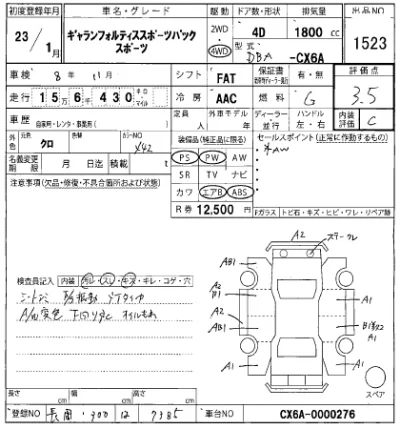 初度登録年月 車名・グレード 駆動 ドア数・形状 排気量 出品NO
23/1月 ギャランフォルティススポーツバック スポーツ 2WD 4WD 4D 1800cc 1523
型式 DBA -CX6A
車検 8年 11月 シフト FAT 保証書 有・無 評価点
走行 15万6千430 キロ マイル 冷房 AAC 燃料 G 3.5
車歴 自家用・レンタ・事業用( ) 定員 人 外車モデル 年 ディーラー 並行 ハンドル 左・右 内装評価 C
外色 元色 クロ 色替 カラーNO X42 装備品(純正品に限る) セールスポイント(正常に作動するもの)
PS PW AW ・AW
名義変更期限 月 日迄 積載 t SR TV ナビ
注意事項(欠品・修復・不具合箇所および状態) カワ エアB ABS
R券 12,500円 Fガラス トビ石・キズ・ヒビ・ワレ・リペア跡
A2
AB1 AB1
検査員記入 内装 汚レ・スレ・キズ・キレ・コゲ・穴
A2 B1 A1
A2 AB1
A/W変色 下回りサビ オイルもれ
A1 A1
A2
スペア
長さ cm 幅 cm 高さ cm
登録NO 長岡 300 は 7385 車台NO CX6A-0000276